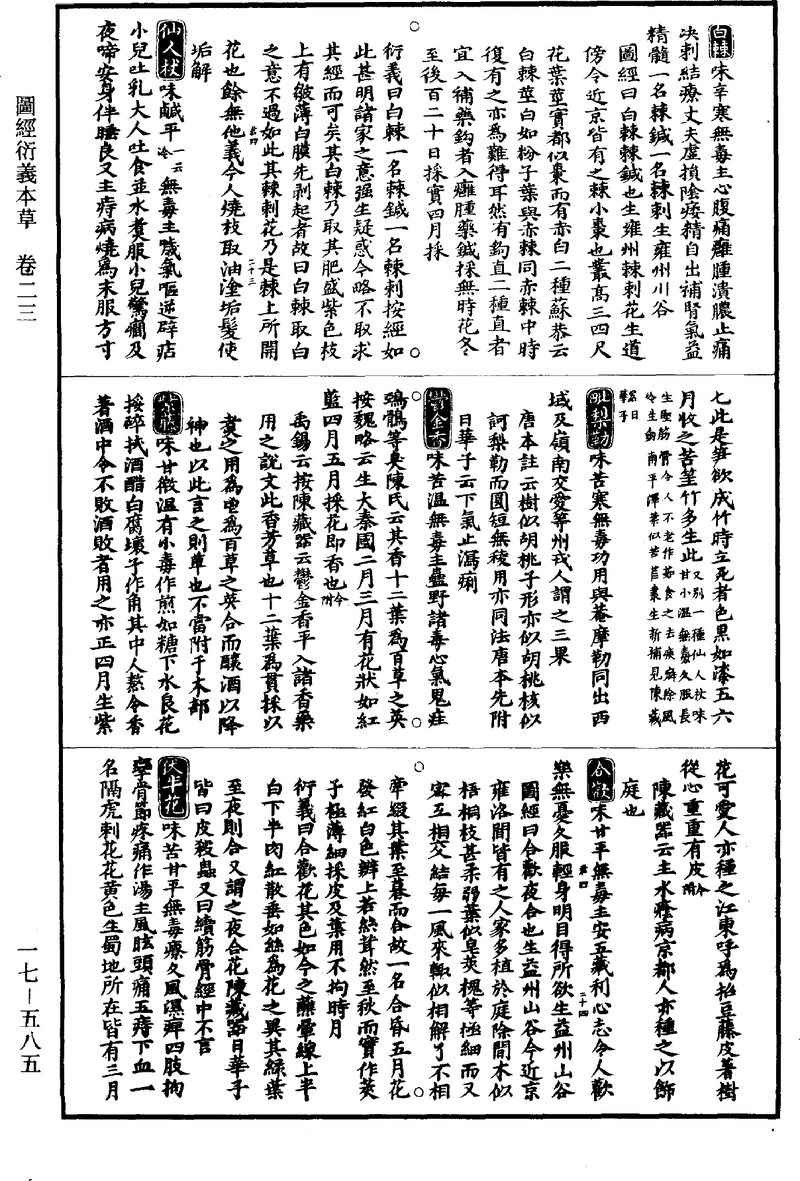 白棘味辛寒無毒主心腹痛癰腫潰膿止痛
决刺結療丈夫虛損陰痿精自出補腎氣益
精髓一名棘鍼一名棘刺生雍州川谷
圖經曰白棘棘鍼也生雍州棘刺花生道
傍今近京皆有之棘小棗也叢高三四尺
花葉莖實都似棗而有赤白二種蘇恭云
白棘莖白如粉子葉與赤棘同赤棘中時
復有之亦為難得耳然有鈎直二種直者
宜入補藥鈎者入癰腫藥鍼採無時花冬
至後百二十日採實四月採
衍義曰白棘一名棘鍼一名棘刺按經如
此甚明諸家之意强生疑惑今略不取求
其經而可矣其白棘乃取其肥盛紫色枝
上有皺薄白膜先剥起者故曰白棘取白
之意不過如此其棘刺花乃是棘上所開
花也餘無他義今人燒枝取油塗垢髮使
垢解
仙人杖味鹹平一云冷無毒主噦氣嘔逆辟痁
小兒吐乳大人吐食並水煑服小兒驚癎及
夜啼安身伴睡良又主痔病燒為末服方寸
七此是笋欲成竹時立死者色黒如漆五六
月收之苦筀竹多生此又別一種仙人杖味甘小溫無毒久服長
生堅筋骨令人不老作茹食之去痰癖除風
冷生劒南平澤葉似苦苣叢生新補見陳藏
器日華子
毗梨勒味苦寒無毒功用與菴摩勒同出西
域及嶺南交愛等州戎人謂之三果
唐本註云樹似胡桃子形亦似胡桃核似
訶梨勒而圓短無稜用亦同法唐本先附
日華子云下氣止瀉痢
鬱金香味苦溫無毒主蠱野諸毒心氣鬼疰
鵶鶻等臭陳氏云其香十二葉為百草之英
按魏略云生大秦國二月三月有花狀如紅
藍四月五月採花即香也今附
禹錫云按陳藏器云鬱金香平入諸香藥
用之説文此香芳草也十二葉為貫採以
煑之用為鬯為百草之英合而釀酒以降
神也以此言之則草也不當附于木部
紫藤味甘微溫有小毒作煎如糖下水良花
挼碎拭酒醋白腐壞子作角其中人熬令香
著酒中令不敗酒敗者用之亦正四月生紫
花可愛人亦種之江東呼為招豆藤皮著樹
從心重重有皮今附
陳藏器云主水癊病京都人亦種之以飾
庭也
合歡味甘平無毒主安五藏利心志令人歡
樂無憂久服輕身明目得所欲生益州山谷
圖經曰合歡夜合也生益州山谷今近京
雍洛間皆有之人家多植於庭除間木似
梧桐枝甚柔弱葉似皁莢槐等極細而又
密互相交結每一風來輙似相解了不相
牽綴其葉至暮而合故一名合昏五月花
發紅白色瓣上若絲茸然至秋而實作莢
子極薄細採皮及葉用不拘時月
衍義曰合歡花其色如今之蘸暈線上半
白下半肉紅散垂如絲為花之異其緑葉
至夜則合又謂之夜合花陳藏器日華子
皆曰皮殺蟲又曰續筋骨經中不言
伏牛花味苦甘平無毒療久風濕痺四肢拘
攣骨節疼痛作湯主風眩頭痛五痔下血一
名隔虎刺花花黄色生蜀地所在皆有三月
圖經衍義本草 卷二三
一七—五八五